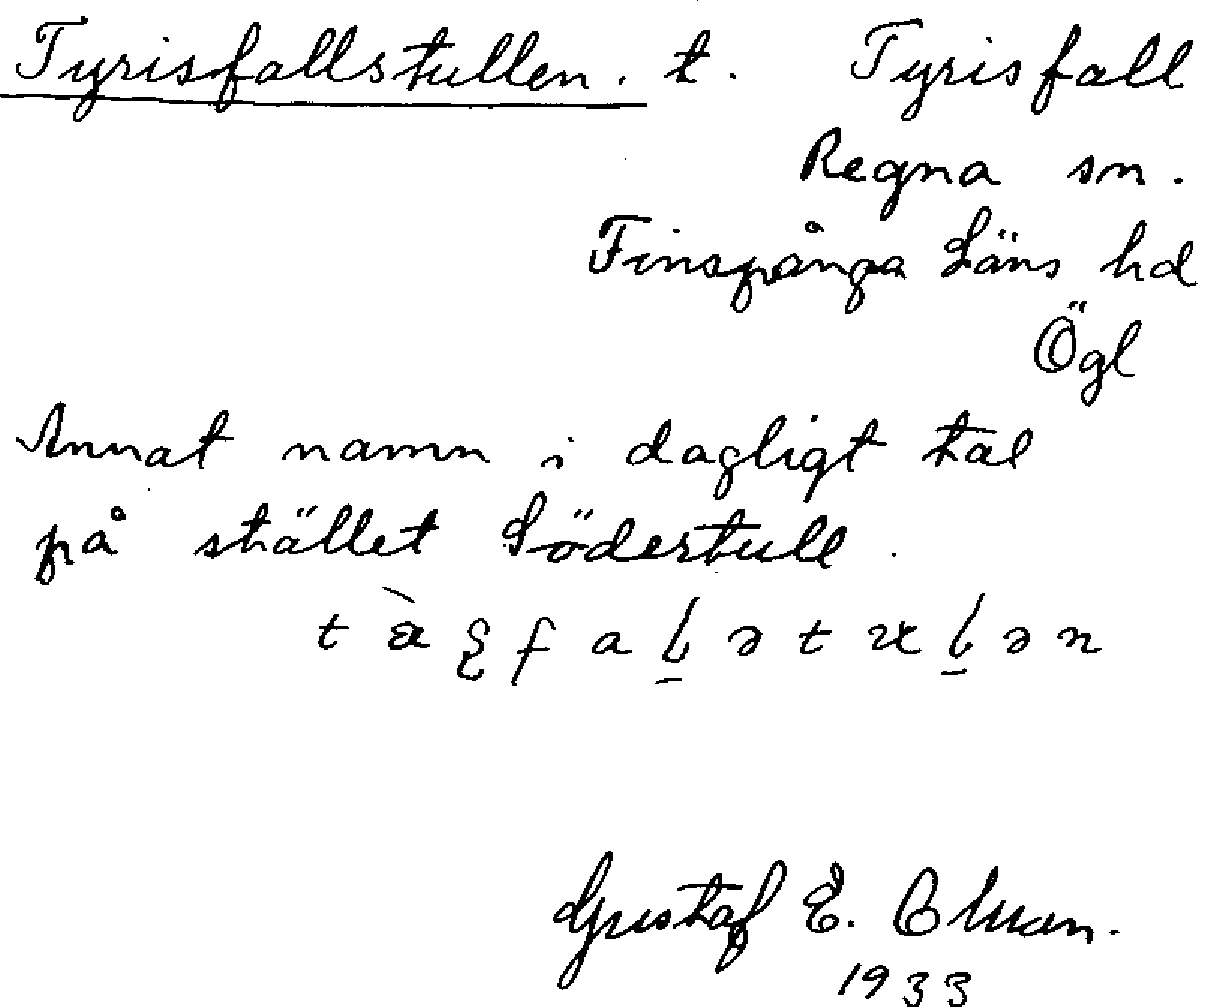 Tyrisfallstullen. t. Tyrisfall
Regna sn.
Finspånga Läns hd
Ögl
Annat namn i dagligt tal
på stället Södertull.
Gustaf E.
1933